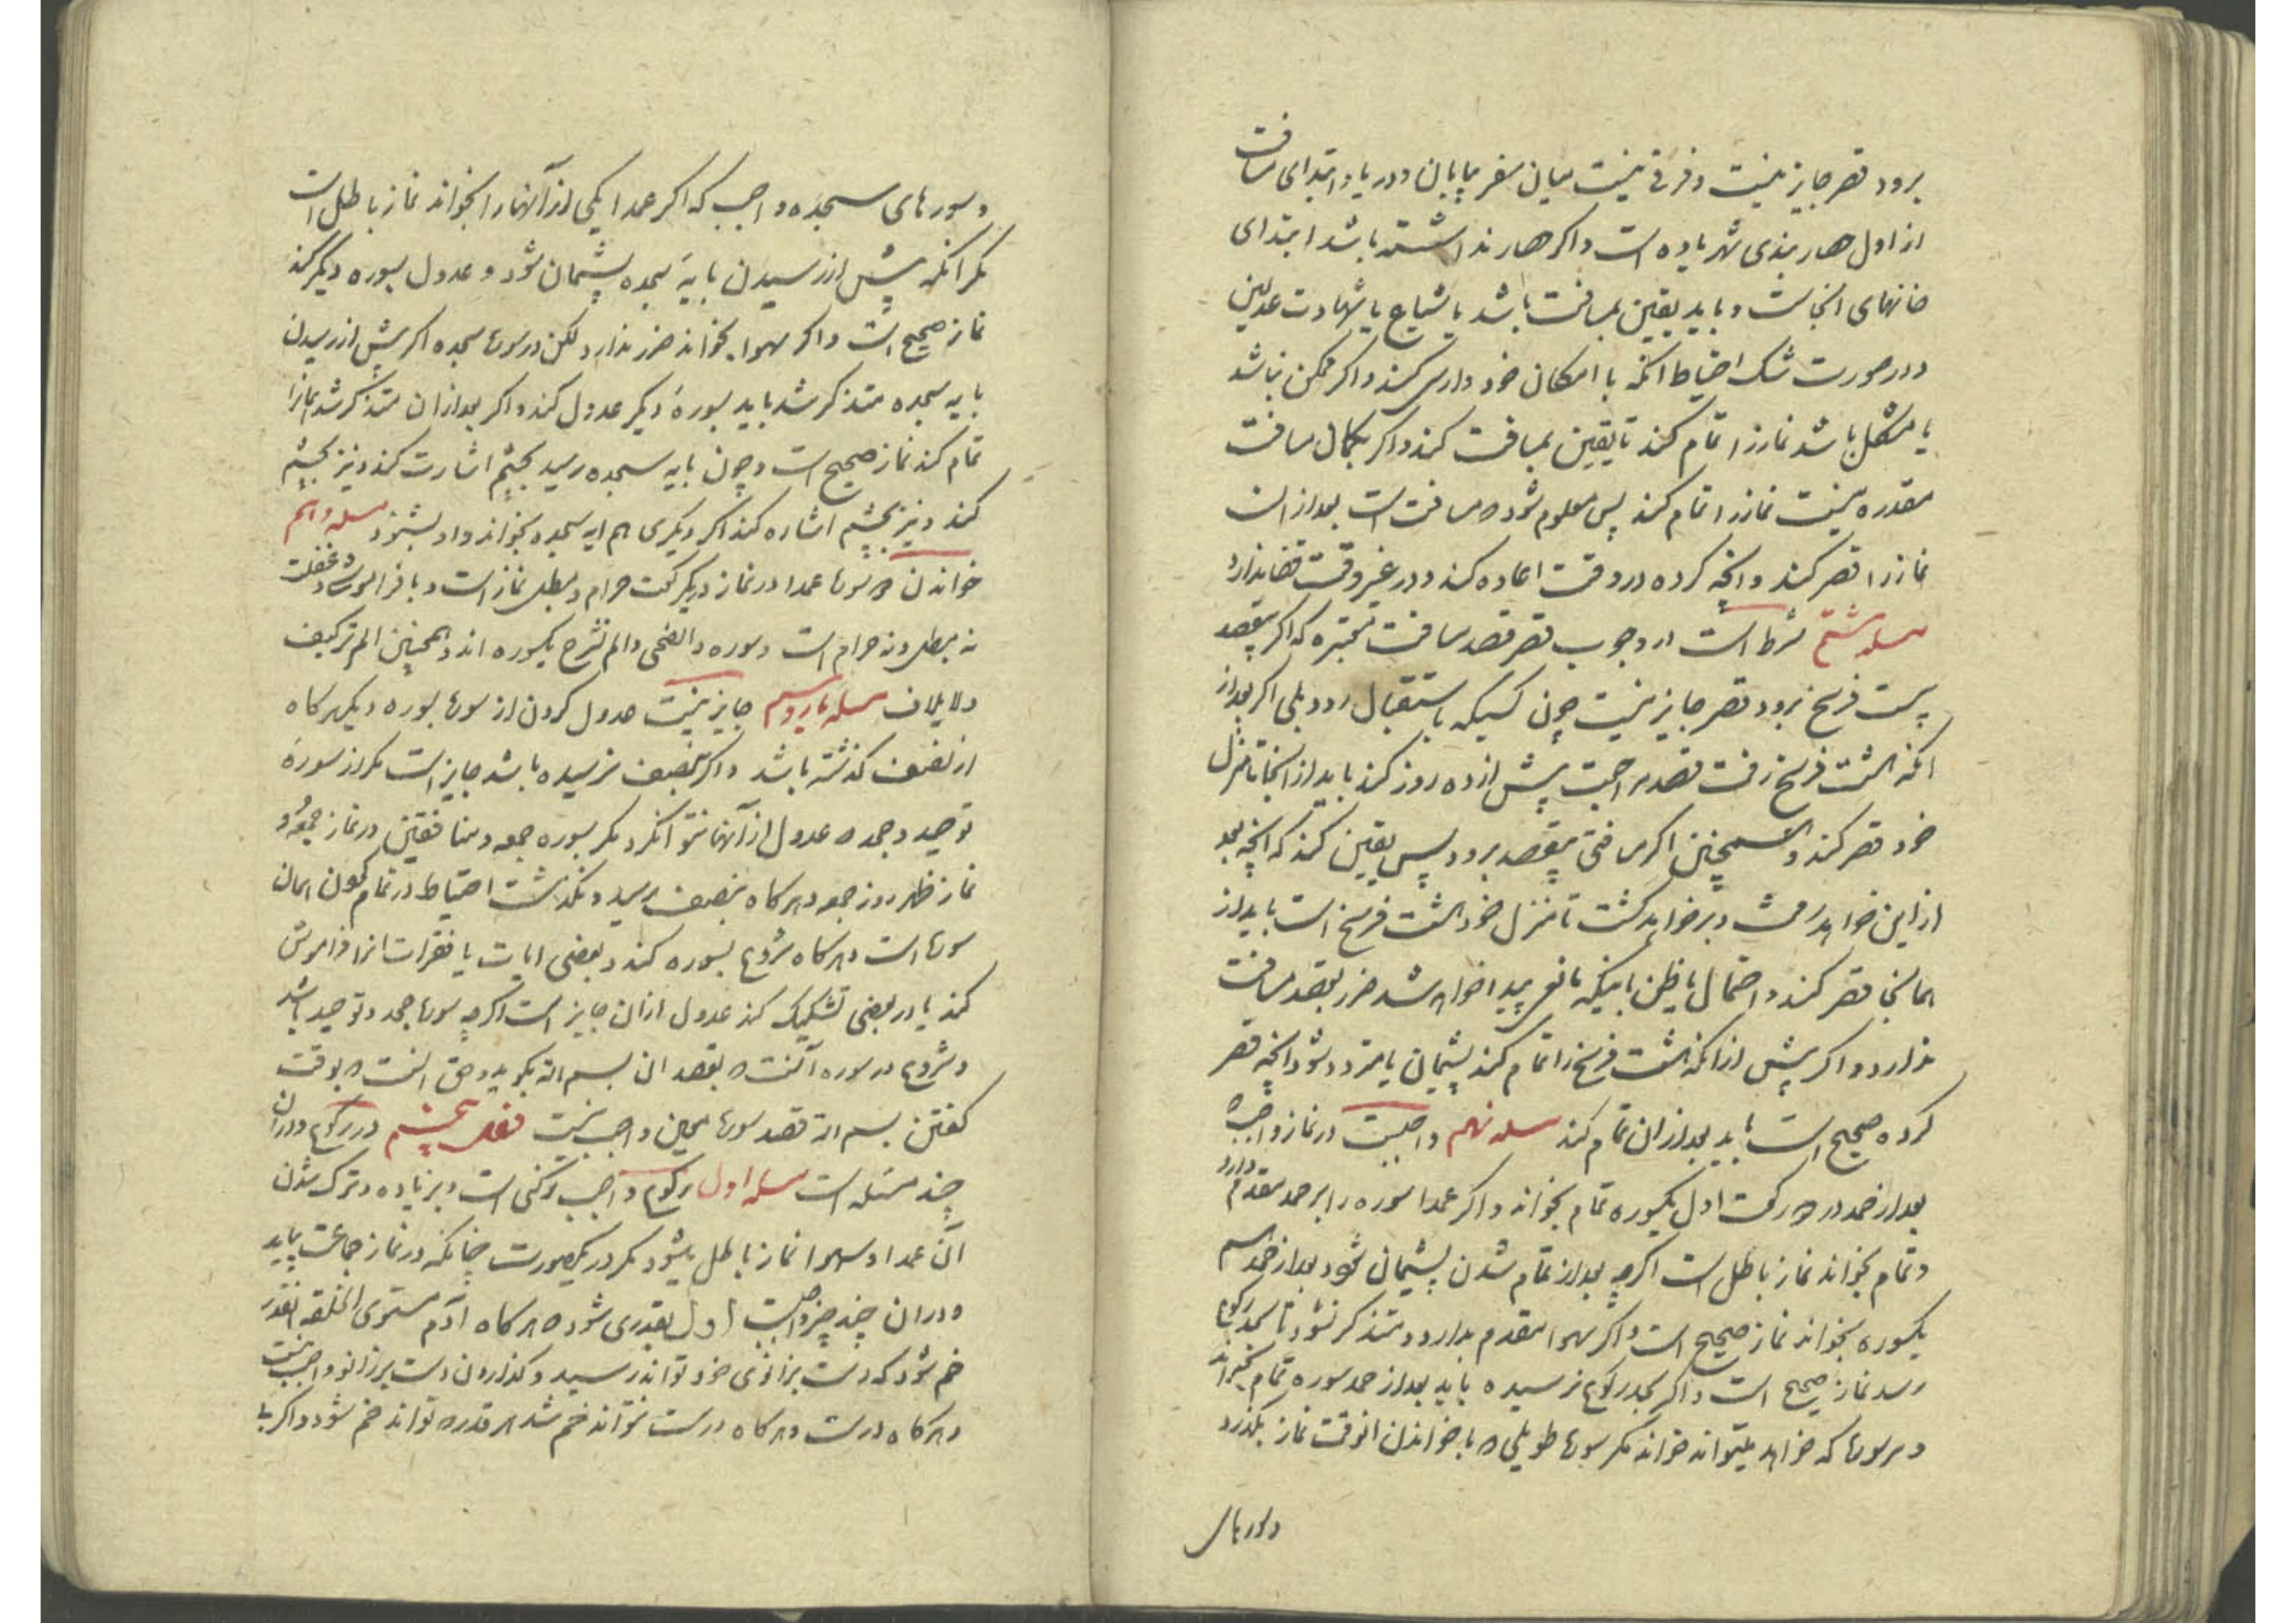 برود قصر جایز نیست و فرقی نیست میان سفر بیابان و دریا و ابتدای مسافت
از اول حصار بندی شهر یا ده است و اگر حصار نداشته باشد ابتدای
خانهای انجاست و باید یقین بمسافت باشد یا شیاع یا شهادت عدلین
و در صورت شک احتیاط انکه با امکان خود داری کند و اگر ممکن نباشد
یا مشکل باشد نماز را تمام کند تا یقین بمسافت کند و اگر بکمان مسافت
مقدره نیست نماز را تمام کند پس معلوم شود که مسافت است بعد از ان
نماز را قصر کند و انچه کرده در وقت اعاده کند و در غیر وقت قضا ندارد
مسله هشتم شرط است در وجوب قصر قصد مسافت معتبره که اگر بیقصد
بیست فرسخ برود قصر جایز نیست چون کسیکه باستقبال رود بلی اگر بعد از
انکه هشت فرسخ رفت قصد مراجعت پیش از ده روز کند باید از انجا تا منزل
خود قصر کند و همچنین اگر مسافتی بیقصد برود پس یقین کند که انچه بعد
از این خواهد رفت و برخواهد کشت تا منزل خود هشت فرسخ است باید از
همانجا قصر کند و احتمال یا ظن باینکه مانعی پیدا خواهد شد ضرر بقصد مسافت
ندارد و اگر پیش از انکه هشت فرسخ را تمام کند پشیمان یا متردد شود انچه قصر
کرده صحیح است باید بعد از ان تمام کند مسله نهم واجبست در نماز واجبه
بعد از حمد در دو رکعت اول یکسوره تمام بخواند و اگر عمدا سوره را بر حمد مقدم دارد
و تمام بخواند نماز باطل است اگرچه بعد از تمام شدن پشیمان شود بعد از حمد هم
یکسوره بخواند نماز صحیح است و اگر سهوا مقدم بدارد و متذکر نشود تا بحد رکوع
رسد نماز صحیح است و اگر بحد رکوع نرسیده باید بعد از حمد سوره تمام بخواند
و هر سوره که خواهد میتواند خواند مگر سوره طویلی که با خواندن ان وقت نماز بگذرد
و سورهای
و سورهای سجده واجب که اگر عمدا یکی از آنها را بخواند نماز باطل است
مکر انکه پیش از رسیدن بایهٔ سجده پشیمان شود و عدول بسوره دیگر کند
نماز صحیح است و اگر سهوا بخواند ضرر ندارد لکن در سوره سجده اگر پیش از رسیدن
بایه سجده متذکر شد باید بسورهٔ دیگر عدول کند و اگر بعد از ان متذکر شد نماز را
تمام کند نماز صحیح است و چون بایه سجده رسید بچشم اشارت کند و نیز بچشم
کند و نیز بچشم اشاره کند اگر دیگری هم ایه سجده بخواند و او بشنود مسله دهم
خواندن دو سوره عمدا در نماز در یکرکعت حرام و مبطل نماز است و با فراموشی و غفلت
نه مبطل و نه حرام است و سوره والضحی و الم نشرح یکسوره اند و همچنین الم تر کیف
و لایلاف مسله یازدهم جایز نیست عدول کردن از سوره بسوره دیگر هرگاه
از نصف گذشته باشد و اگر بنصف نرسیده باشد جایز است مگر از سورهٔ
توحید و جحد که عدول از آنها نتوان کرد مگر بسوره جمعه و منافقین در نماز جمعه و
نماز ظهر روز جمعه و هرگاه بنصف رسید و نگذشت احتیاط در تمام کردن همان
سوره است و هرگاه شروع بسوره کند و بعضی ایات یا فقرات انرا فراموش
کند یا در بعضی تشکیک کند عدول از ان جایز است اگرچه سوره جحد و توحید باشد
و شروع در سوره آنست که بقصد ان بسم الله بگوید و حق انست که بوقت
کفتن بسم الله قصد سوره معین واجب نیست فصل هشتم در رکوع و در ان
چند مسئله است مسله اول رکوع واجب رکنی است و بزیاده و ترک شدن
آن عمدا و سهوا نماز باطل میشود مگر در یکصورت چنانکه در نماز جماعت بیاید
و در ان چند چیز واجبست اول بقدری خم شود که هرگاه آدم مستوی الخلقه انقدر
خم شود که دست بزانوی خود تواند رسید و گذاردن دست بر زانو واجب نیست
و هرگاه درست و هرگاه درست نتواند خم شد هر قدر که تواند خم شود و اگر با